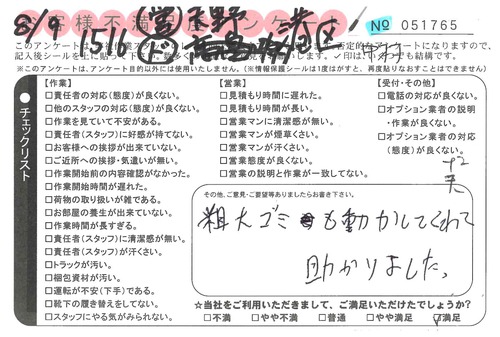 8/9
お客様不満足度アンケート
№ 051765
1516
このアンケートは
記入後シールを
※このアンケートは、アンケート目的以外には使用いたしません。(※情報保護シールは1度はがすと、再度貼りなおすことはできません)
チェックリスト
【作業】
□責任者の対応(態度)が良くない。
□他のスタッフの対応(態度)が良くない。
□作業を見ていて不安がある。
□責任者(スタッフ)に好感が持てない。
□お客様への挨拶が出来ていない。
□ご近所への挨拶・気遣いが無い。
□作業開始前の内容確認がなかった。
□作業開始時間が遅れた。
□荷物の取り扱いが雑である。
□お部屋の養生が出来ていない。
□作業時間が長すぎる。
□責任者(スタッフ)に清潔感が無い。
□責任者(スタッフ)が汗くさい。
□トラックが汚い。
□梱包資材が汚い。
□運転が不安(下手)である。
□靴下の履き替えをしてない。
□スタッフにやる気がみられない。
【営業】
□見積もり時間に遅れた。
□見積もり時間が長い。
□営業マンに清潔感が無い。
□営業マンが煙草くさい。
□営業マンが汗くさい。
□営業態度が良くない。
□営業の説明と作業が一致してない。
【受付・その他】
□電話の対応が良くない。
□オプション業者の説明
・作業が良くない。
□オプション業者の対応
(態度)が良くない。
その他、ご意見・ご要望等ありましたらお書き下さい。
粗大ゴミも動かしてくれて
助かりました。
☆当社をご利用いただきまして、ご満足いただけたでしょうか?
□不満 □やや不満 □普通 □やや満足 ☑満足